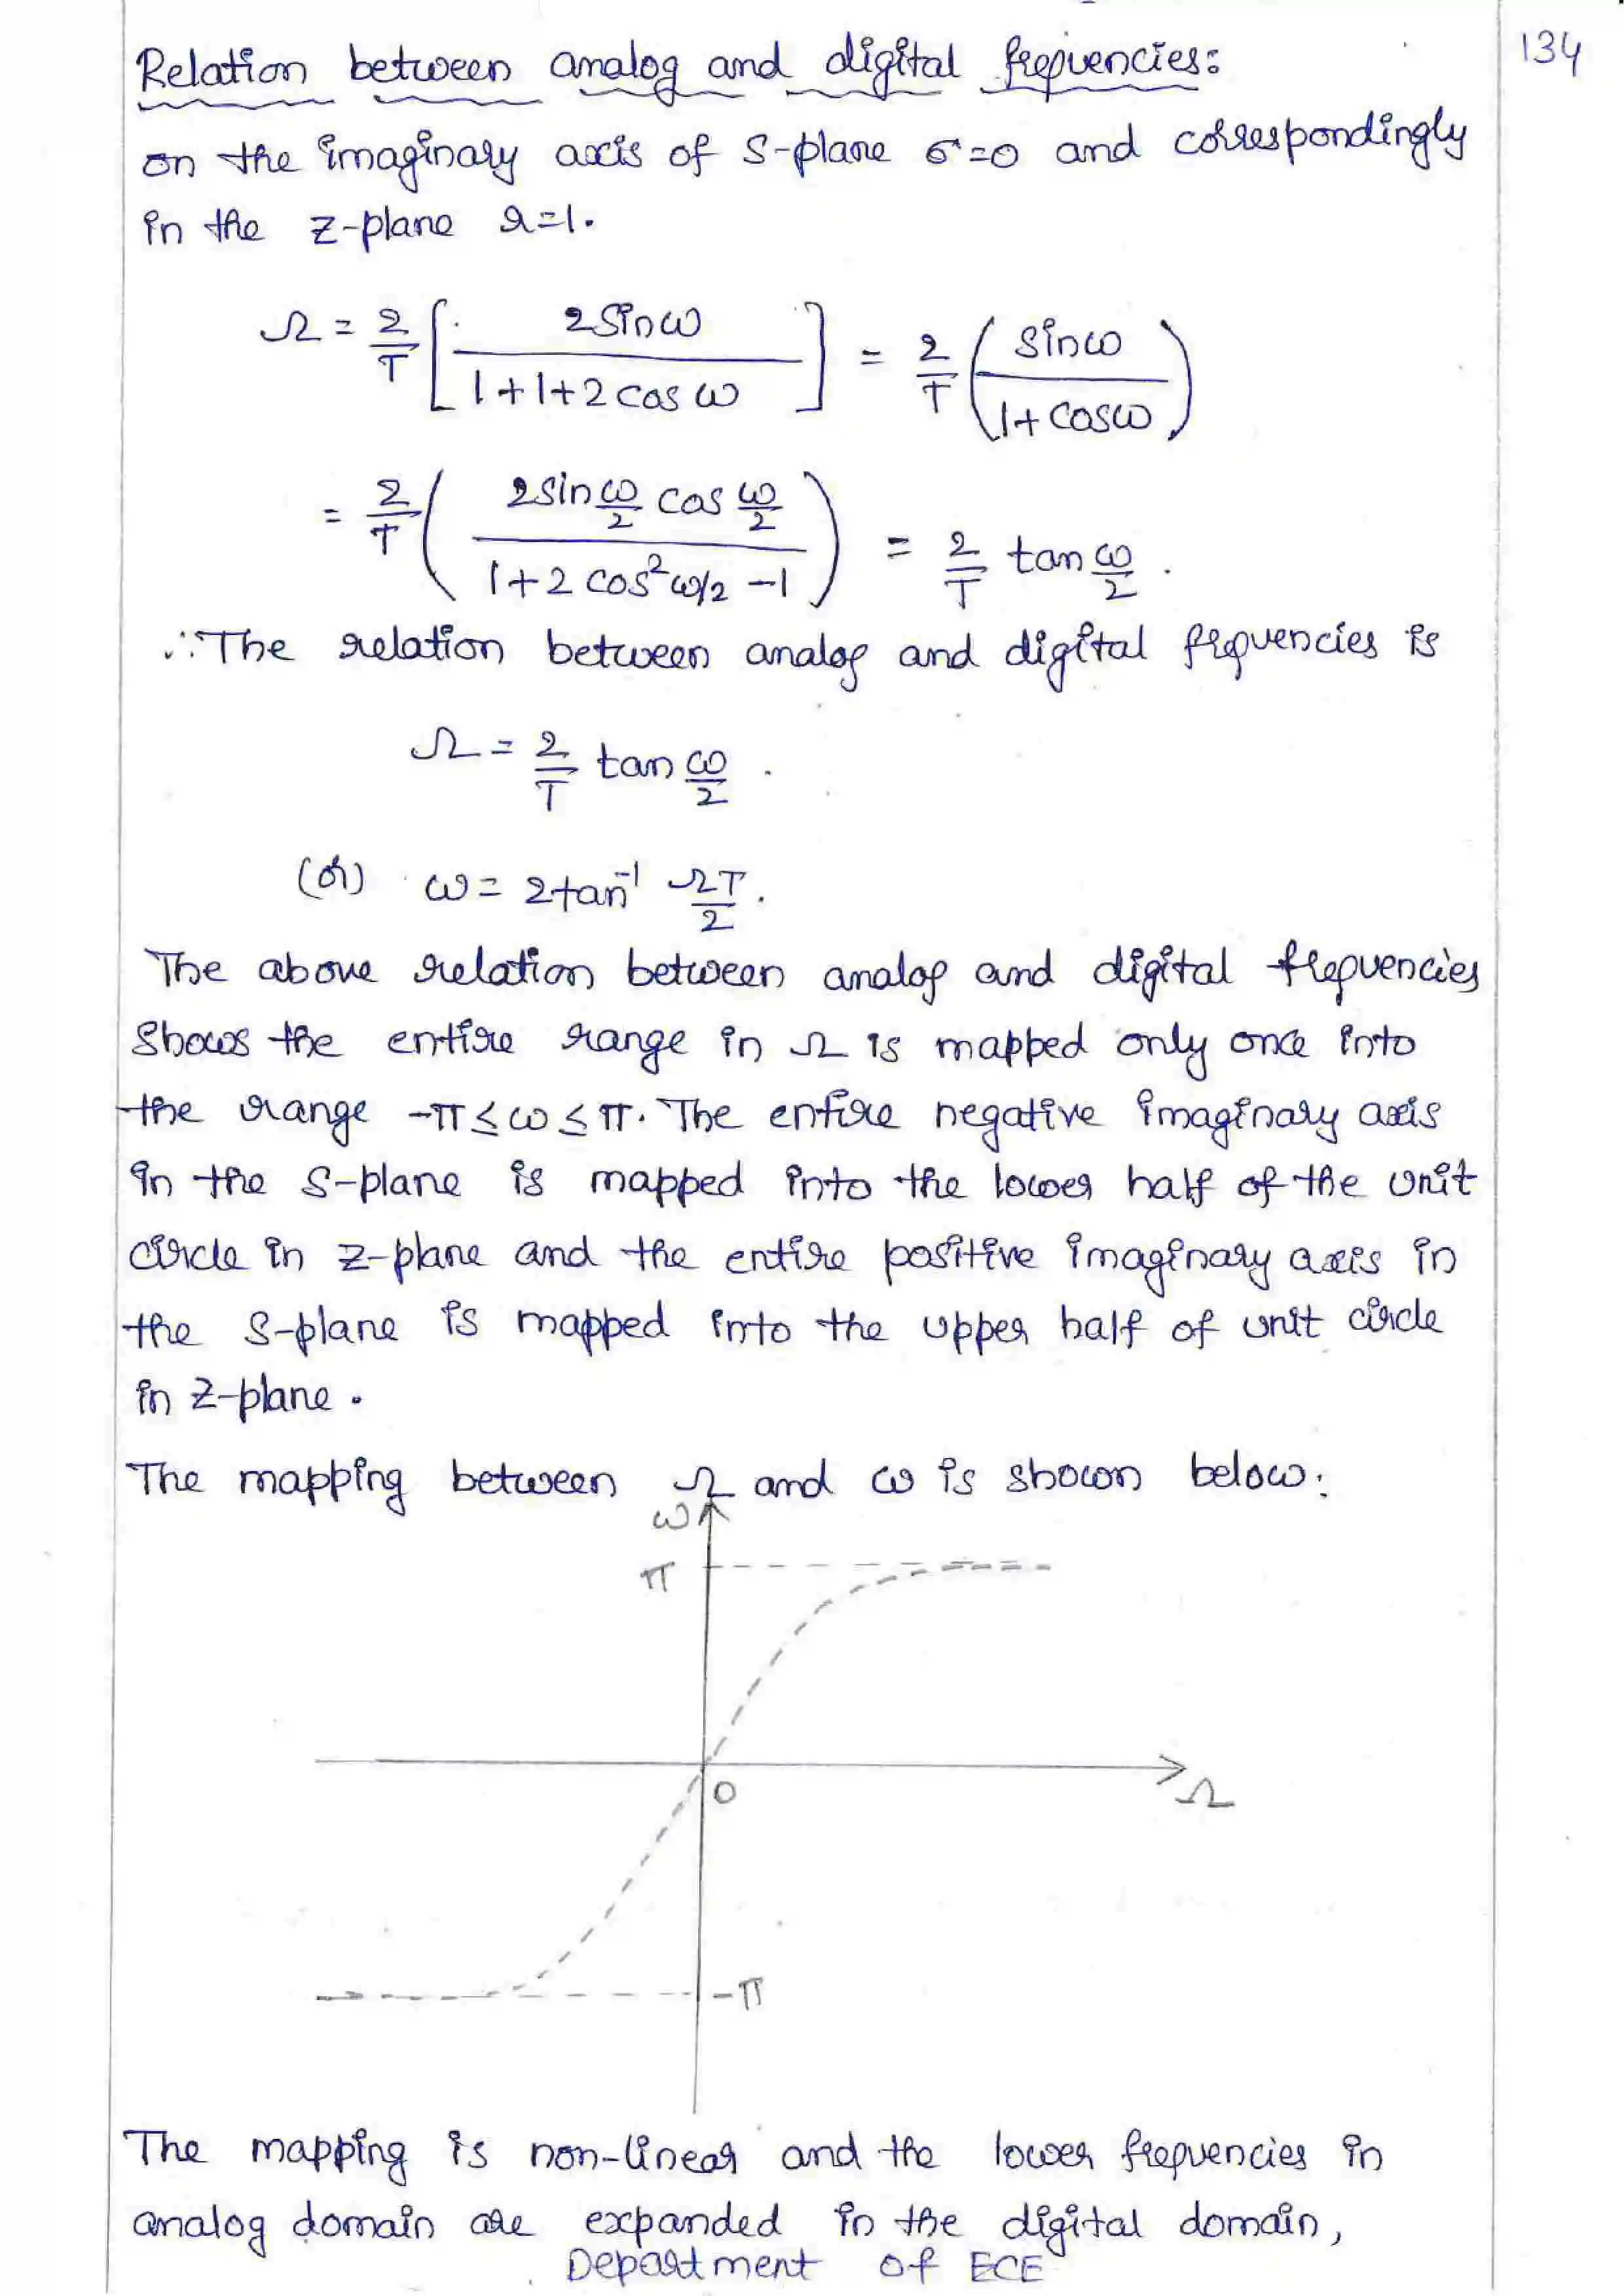 134
Relation between analog and digital frequencies:
on the imaginary axis of S-plane σ=0 and correspondingly
in the z-plane r=1.
Ω = 2/T [ 2sinω / 1+1+2cosω ] = 2/T ( sinω / 1+cosω )
= 2/T ( 2sin ω/2 cos ω/2 / 1+2cos²ω/2 -1 ) = 2/T tan ω/2 .
∴ The relation between analog and digital frequencies is
Ω = 2/T tan ω/2 .
(or) ω = 2tan⁻¹ ΩT/2 .
The above relation between analog and digital frequencies
shows the entire range in Ω is mapped only once into
the range -π ≤ ω ≤ π. The entire negative imaginary axis
in the S-plane is mapped into the lower half of the unit
circle in z-plane and the entire positive imaginary axis in
the S-plane is mapped into the upper half of unit circle
in Z-plane.
The mapping between Ω and ω is shown below:
ω
π
0
Ω
-π
The mapping is non-linear and the lower frequencies in
analog domain are expanded in the digital domain,
Department of ECE